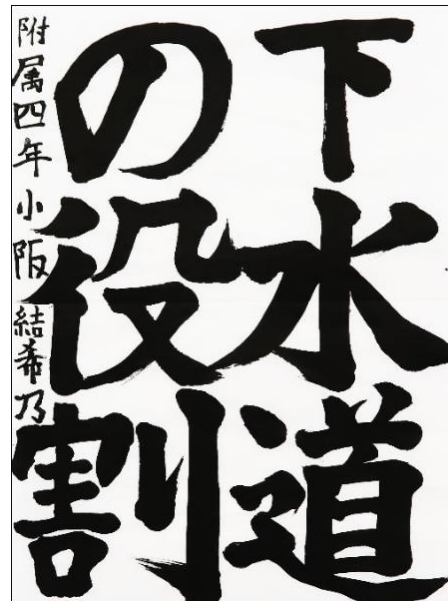 下水道
の役割
附属四年小阪結希乃